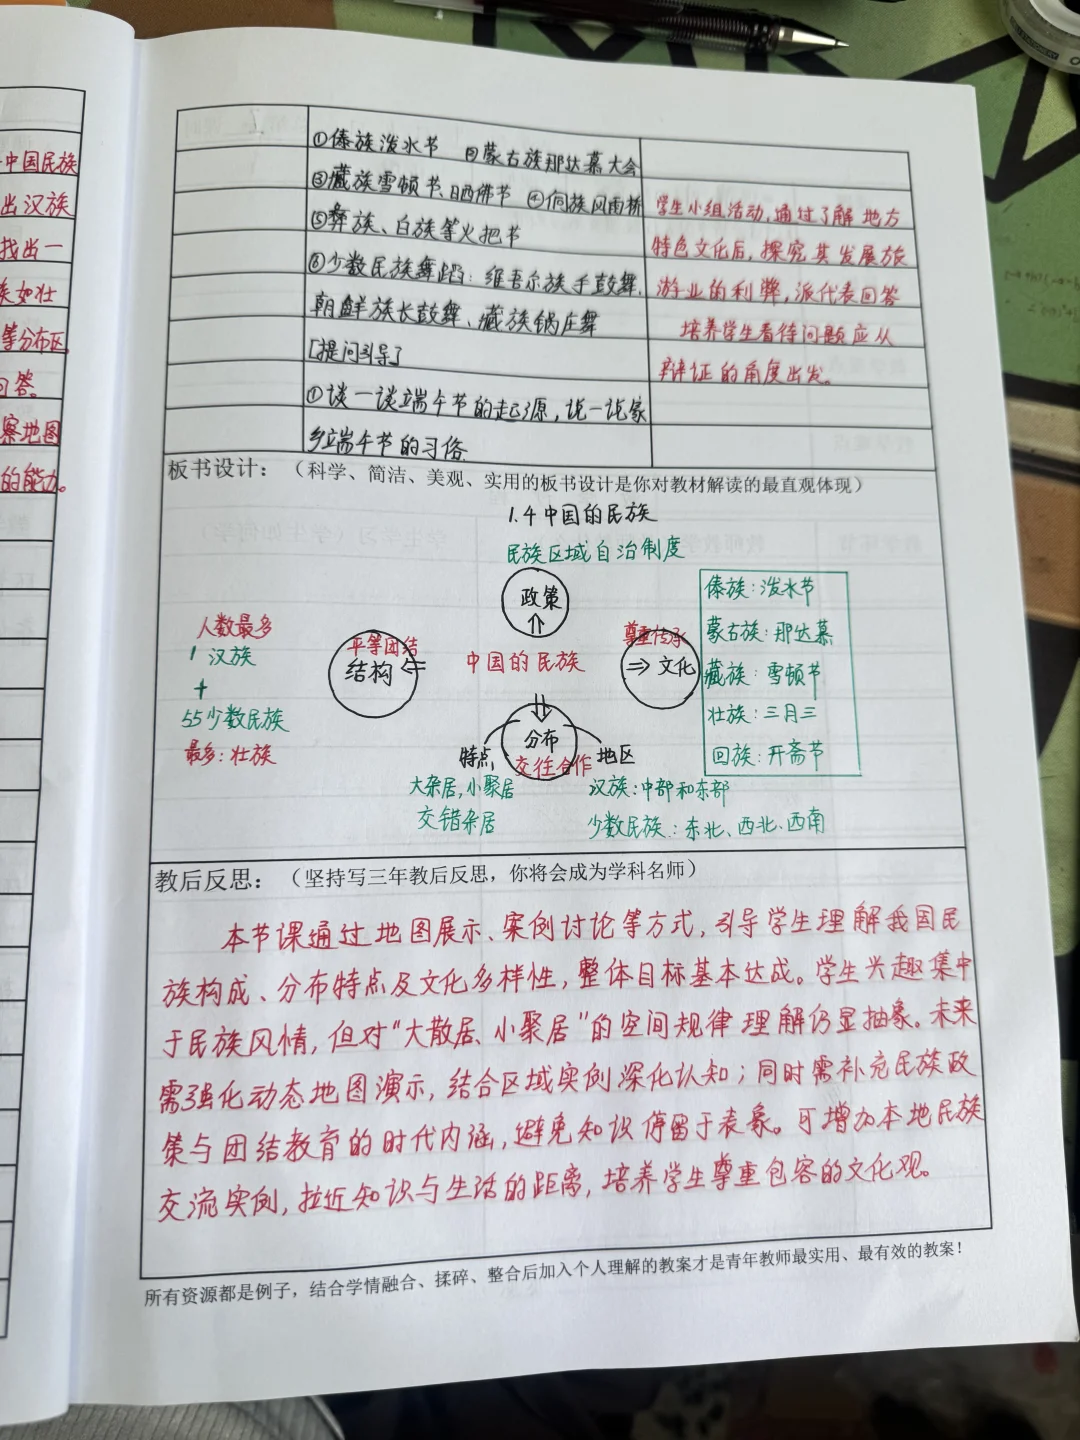 中国民族
出汉族
找出一
族如壮
等分布区
回答。
察地图
的能力。
①傣族泼水节 ②蒙古族那达慕大会
③藏族雪顿节、晒佛节 ④侗族风雨桥
⑤彝族、白族等火把节
⑥少数民族舞蹈：维吾尔族手鼓舞、
朝鲜族长鼓舞、藏族锅庄舞
[提问引导]
①谈一谈端午节的起源，说一说家
乡端午节的习俗
学生小组活动，通过了解地方
特色文化后，探究其发展旅
游业的利弊，派代表回答
培养学生看待问题应从
辩证的角度出发。
板书设计：（科学、简洁、美观、实用的板书设计是你对教材解读的最直观体现）
1.4中国的民族
民族区域自治制度
政策
人数最多
1 汉族
+
55少数民族
最多：壮族
平等团结
结构
中国的民族
尊重传承
文化
傣族：泼水节
蒙古族：那达慕
藏族：雪顿节
壮族：三月三
回族：开斋节
分布
交往合作
特点
大杂居，小聚居
交错杂居
地区
汉族：中部和东部
少数民族：东北、西北、西南
教后反思：（坚持写三年教后反思，你将会成为学科名师）
本节课通过地图展示、案例讨论等方式，引导学生理解我国民
族构成、分布特点及文化多样性，整体目标基本达成。学生兴趣集中
于民族风情，但对“大散居、小聚居”的空间规律理解仍显抽象。未来
需强化动态地图演示，结合区域实例深化认知；同时需补充民族政
策与团结教育的时代内涵，避免知识停留于表象。可增加本地民族
交流实例，拉近知识与生活的距离，培养学生尊重包容的文化观。
所有资源都是例子，结合学情融合、揉碎、整合后加入个人理解的教案才是青年教师最实用、最有效的教案！